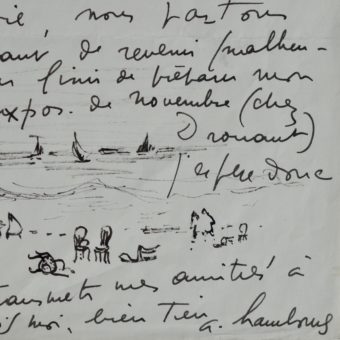 ie, nous partons
ant de revenir (malheu-
fini de préparer mon
expos. de novembre (chez
Drouant)
j'espère donc
transmets mes amitiés à
moi, bien tien
a. hambourg